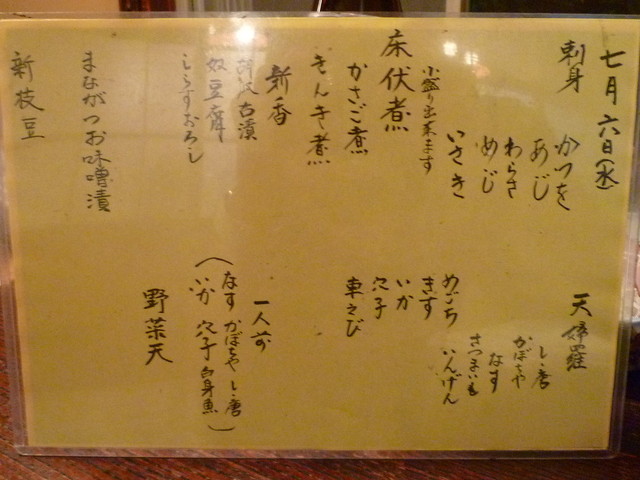 七月六日(水)
刺身
かつを
あじ
わらさ
めじ
いさき
小盛り出来ます
床伏煮
かさご煮
きんき煮
新香
古漬
奴豆腐
しらすおろし
まながつお味噌漬
新枝豆
天婦羅
しし唐
かぼちゃ
なす
さつまいも
いんげん
めごち
きす
いか
穴子
車えび
一人前
(なす かぼちゃ しし唐
いか 穴子 白身魚)
野菜天